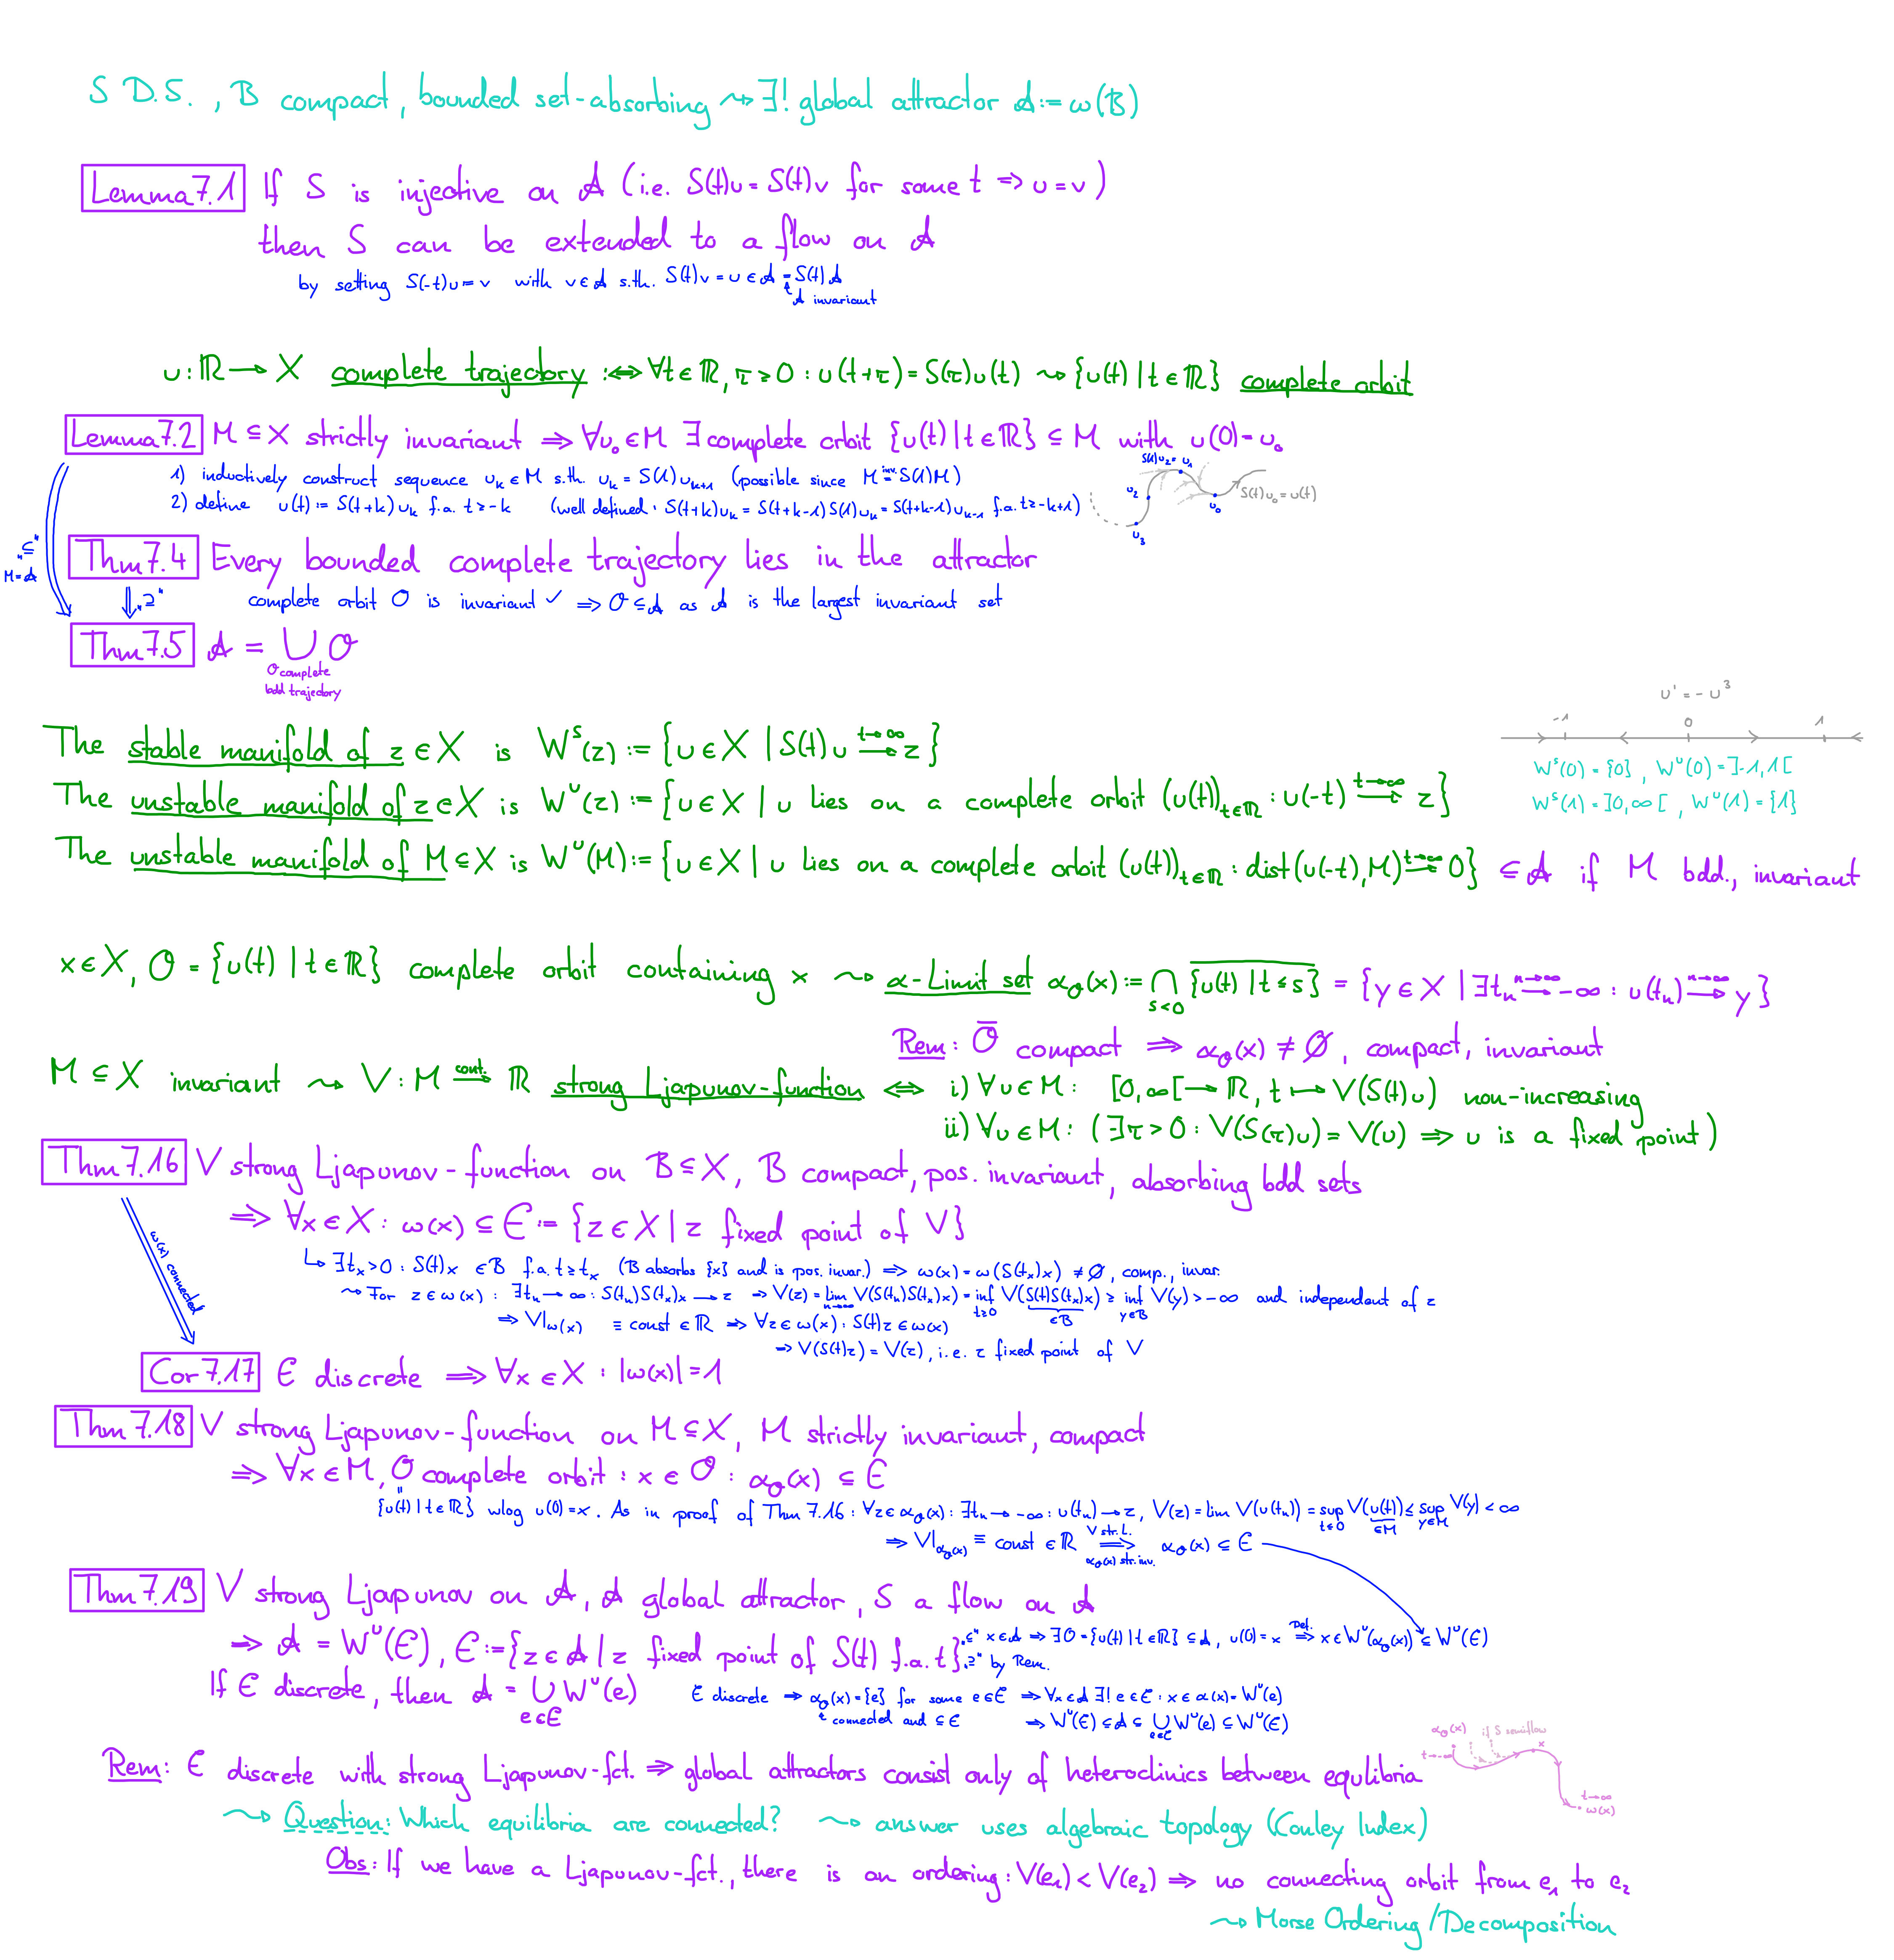 S D.S., B compact, bounded set-absorbing ⇝ ∃! global attractor 𝒜 := ω(B)
Lemma 7.1 If S is injective on 𝒜 (i.e. S(t)u = S(t)v for some t ⇒ u = v)
then S can be extended to a flow on 𝒜
by setting S(-t)u := v with v ∈ 𝒜 s.th. S(t)v = u ∈ 𝒜 = S(t)𝒜
↑ 𝒜 invariant
u : ℝ → X complete trajectory :⇔ ∀t ∈ ℝ, τ ≥ 0 : u(t+τ) = S(τ)u(t) ⇝ {u(t) | t ∈ ℝ} complete orbit
Lemma 7.2 M ⊆ X strictly invariant ⇒ ∀u₀ ∈ M ∃ complete orbit {u(t) | t ∈ ℝ} ⊆ M with u(0) = u₀
1) inductively construct sequence u_k ∈ M s.th. u_k = S(1)u_{k+1} (possible since M =^{inv.} S(1)M)
2) define u(t) := S(t+k)u_k f.a. t ≥ -k (well defined: S(t+k)u_k = S(t+k-1)S(1)u_k = S(t+k-1)u_{k-1} f.a. t ≥ -k+1)
S(1)u₂ = u₁
u₂
u₀
S(t)u₀ = u(t)
u₃
"⊆"
M = 𝒜
Thm 7.4 Every bounded complete trajectory lies in the attractor
⇓ "⊇" complete orbit 𝒪 is invariant ✓ ⇒ 𝒪 ⊆ 𝒜 as 𝒜 is the largest invariant set
Thm 7.5 𝒜 = ⋃ 𝒪
𝒪 complete
bdd trajectory
u' = -u³
-1 0 1
The stable manifold of z ∈ X is W^s(z) := {u ∈ X | S(t)u →^{t→∞} z}
W^s(0) = {0}, W^u(0) = ]-1,1[
The unstable manifold of z ∈ X is W^u(z) := {u ∈ X | u lies on a complete orbit (u(t))_{t∈ℝ} : u(-t) →^{t→∞} z}
W^s(1) = ]0,∞[, W^u(1) = {1}
The unstable manifold of M ⊆ X is W^u(M) := {u ∈ X | u lies on a complete orbit (u(t))_{t∈ℝ} : dist(u(-t), M) →^{t→∞} 0} ⊆ 𝒜 if M bdd., invariant
x ∈ X, 𝒪 = {u(t) | t ∈ ℝ} complete orbit containing x ⇝ α-Limit set α_𝒪(x) := ⋂_{s<0} \overline{{u(t) | t ≤ s}} = {y ∈ X | ∃t_n →^{n→∞} -∞ : u(t_n) →^{n→∞} y}
Rem: \overline{𝒪} compact ⇒ α_𝒪(x) ≠ ∅, compact, invariant
M ⊆ X invariant ⇝ V : M →^{cont.} ℝ strong Ljapunov-function ⇔ i) ∀u ∈ M : [0,∞[ → ℝ, t ↦ V(S(t)u) non-increasing
ii) ∀u ∈ M : (∃τ > 0 : V(S(τ)u) = V(u) ⇒ u is a fixed point)
Thm 7.16 V strong Ljapunov-function on B ⊆ X, B compact, pos. invariant, absorbing bdd sets
⇒ ∀x ∈ X : ω(x) ⊆ ℰ := {z ∈ X | z fixed point of V}
↳ ∃t_x > 0 : S(t)x ∈ B f.a. t ≥ t_x (B absorbs {x} and is pos. invar.) ⇒ ω(x) = ω(S(t_x)x) ≠ ∅, comp., invar.
⇝ For z ∈ ω(x) : ∃t_n → ∞ : S(t_n)S(t_x)x → z ⇒ V(z) = lim_{n→∞} V(S(t_n)S(t_x)x) = inf_{t≥0} V(S(t)S(t_x)x) ≥ inf_{y∈B} V(y) > -∞ and independent of z
∈B
⇒ V|_{ω(x)} ≡ const ∈ ℝ ⇒ ∀z ∈ ω(x) : S(t)z ∈ ω(x)
⇒ V(S(t)z) = V(z), i.e. z fixed point of V
ω(x) connected
Cor 7.17 ℰ discrete ⇒ ∀x ∈ X : |ω(x)| = 1
Thm 7.18 V strong Ljapunov-function on M ⊆ X, M strictly invariant, compact
⇒ ∀x ∈ M, 𝒪 complete orbit : x ∈ 𝒪 : α_𝒪(x) ⊆ ℰ
{u(t) | t ∈ ℝ} wlog u(0) = x. As in proof of Thm 7.16 : ∀z ∈ α_𝒪(x) : ∃t_n → -∞ : u(t_n) → z, V(z) = lim V(u(t_n)) = sup_{t≤0} V(u(t)) ≤ sup_{y∈M} V(y) < ∞
∈M
⇒ V|_{α_𝒪(x)} ≡ const ∈ ℝ ⇒^{V str. L.}_{α_𝒪(x) str. inv.} α_𝒪(x) ⊆ ℰ
Thm 7.19 V strong Ljapunov on 𝒜, 𝒜 global attractor, S a flow on 𝒜
⇒ 𝒜 = W^u(ℰ), ℰ := {z ∈ 𝒜 | z fixed point of S(t) f.a. t} "⊆" x ∈ 𝒜 ⇒ ∃𝒪 = {u(t) | t ∈ ℝ} ⊆ 𝒜, u(0) = x ⇒^{Def.} x ∈ W^u(α_𝒪(x)) ⊆ W^u(ℰ)
"⊇" by Rem.
If ℰ discrete, then 𝒜 = ⋃_{e∈ℰ} W^u(e)
ℰ discrete ⇒ α_𝒪(x) = {e} for some e ∈ ℰ ⇒ ∀x ∈ 𝒜 ∃! e ∈ ℰ : x ∈ α(x) = W^u(e)
↑ connected and ⊆ ℰ ⇒ W^u(ℰ) ⊆ 𝒜 ⊆ ⋃_{e∈ℰ} W^u(e) ⊆ W^u(ℰ)
α_𝒪(x) if S semiflow
t→-∞ x
t→∞
ω(x)
Rem: ℰ discrete with strong Ljapunov-fct. ⇒ global attractors consist only of heteroclinics between equlibria
⇝ Question: Which equilibria are connected? ⇝ answer uses algebraic topology (Conley Index)
Obs: If we have a Ljapunov-fct., there is an ordering: V(e₁) < V(e₂) ⇒ no connecting orbit from e₁ to e₂
⇝ Morse Ordering / Decomposition